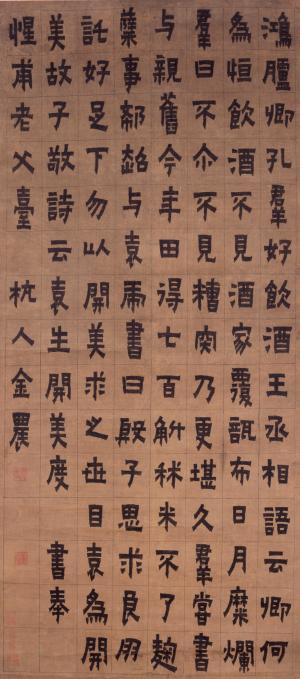 鴻臚卿孔羣好飲酒王丞相語云卿何
為恒飲酒不見酒家覆瓿布日月糜爛
羣曰不尒不見糟宍乃更堪久羣嘗書
与親舊今年田得七百斛秫米不了麴
糵事郗超与袁虎書曰殷子思求良朋
託好足下勿以開美求之世目袁為開
美故子敬詩云袁生開美度 書奉
惺甫老父臺 杭人金農